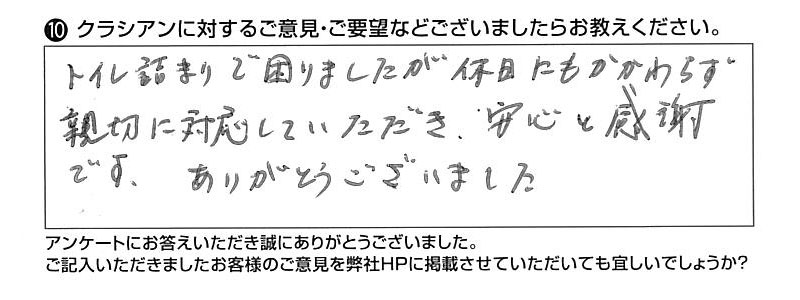 ⑩ クラシアンに対するご意見・ご要望などございましたらお教えください。
トイレ詰まりで困りましたが休日にもかかわらず
親切に対応していただき、安心と感謝
です、ありがとうございました
アンケートにお答えいただき誠にありがとうございました。
ご記入いただきましたお客様のご意見を弊社HPに掲載させていただいても宜しいでしょうか?